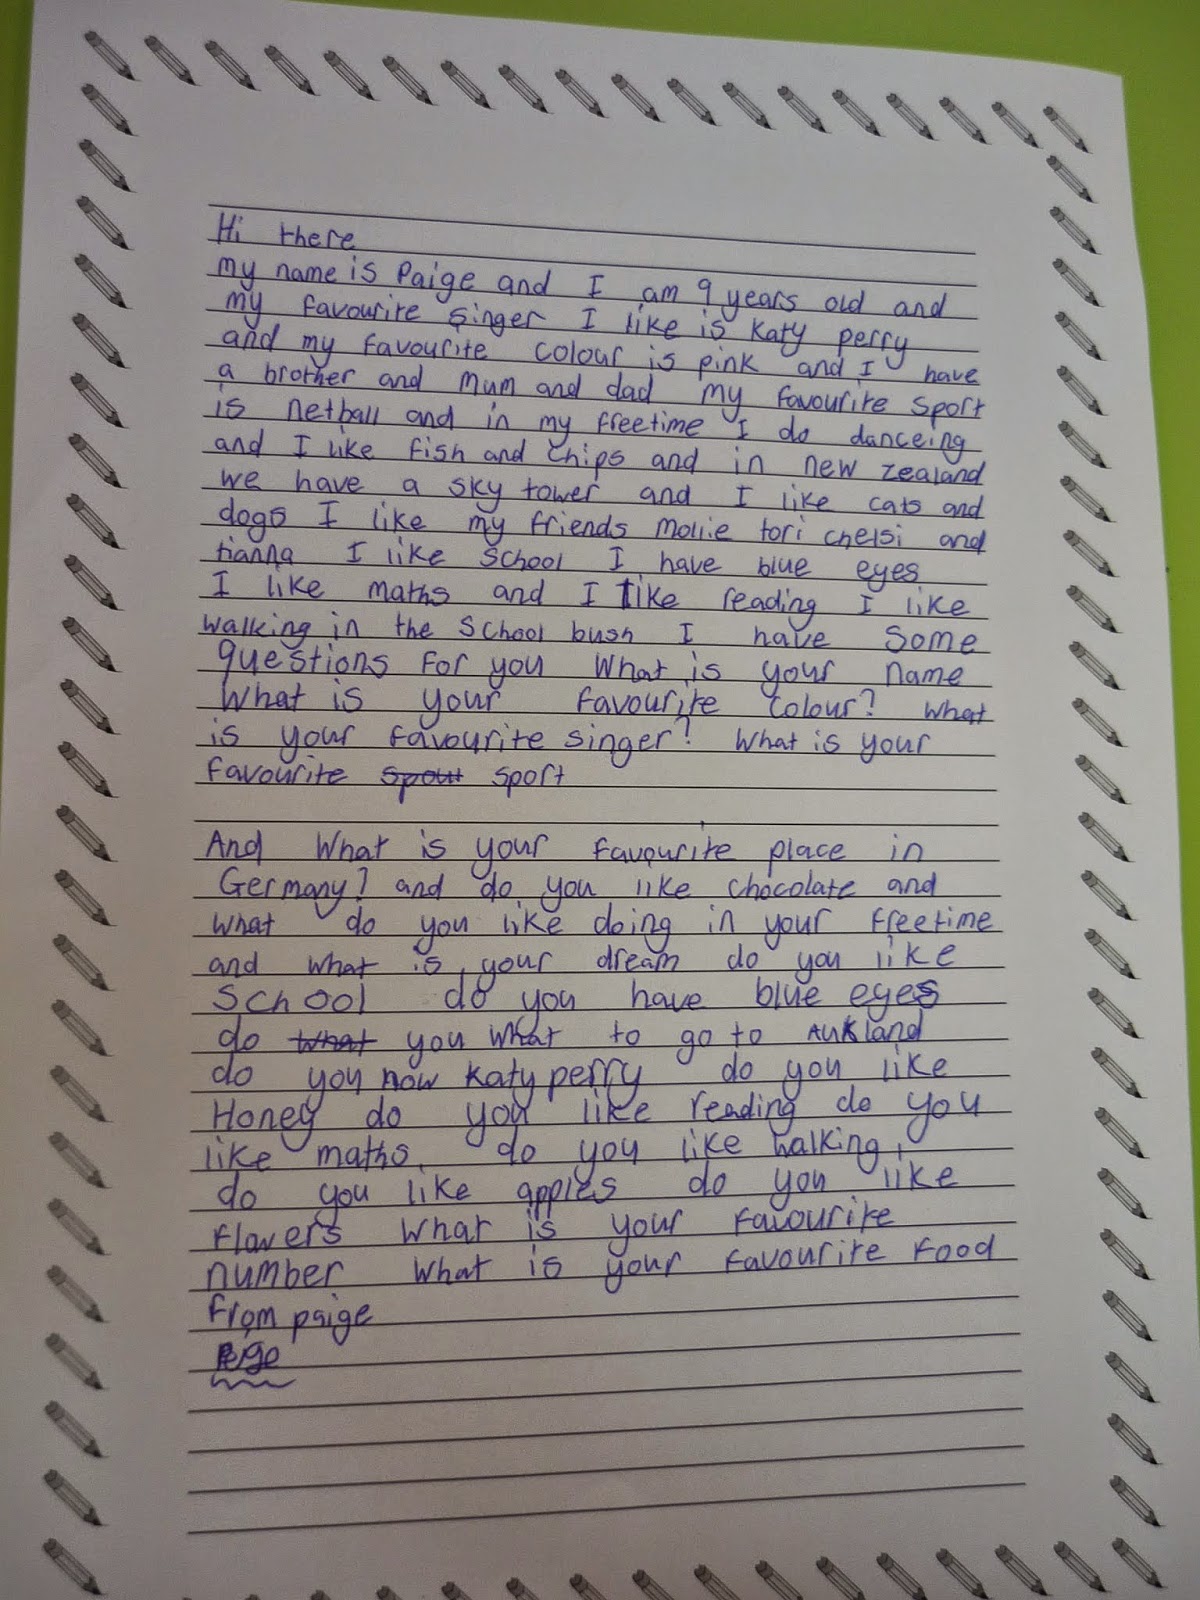 Hi there
my name is Paige and I am 9 years old and
my favourite singer I like is Katy perry
and my favourite colour is pink and I have
a brother and Mum and dad my favourite sport
is netball and in my freetime I do danceing
and I like fish and chips and in new zealand
we have a sky tower and I like cats and
dogs I like my friends mollie tori chelsi and
tianna I like school I have blue eyes
I like maths and I like reading I like
walking in the school bush I have some
questions for you what is your name
What is your favourite colour? what
is your favourite singer? What is your
favourite spout sport
And What is your favourite place in
Germany? and do you like chocolate and
what do you like doing in your freetime
and what is your dream do you like
school do you have blue eyes
do what you what to go to Aukland
do you now Katy perry do you like
Honey do you like reading do you
like maths do you like walking
do you like apples do you like
flowers what is your favourite
number what is your favourite food
from paige